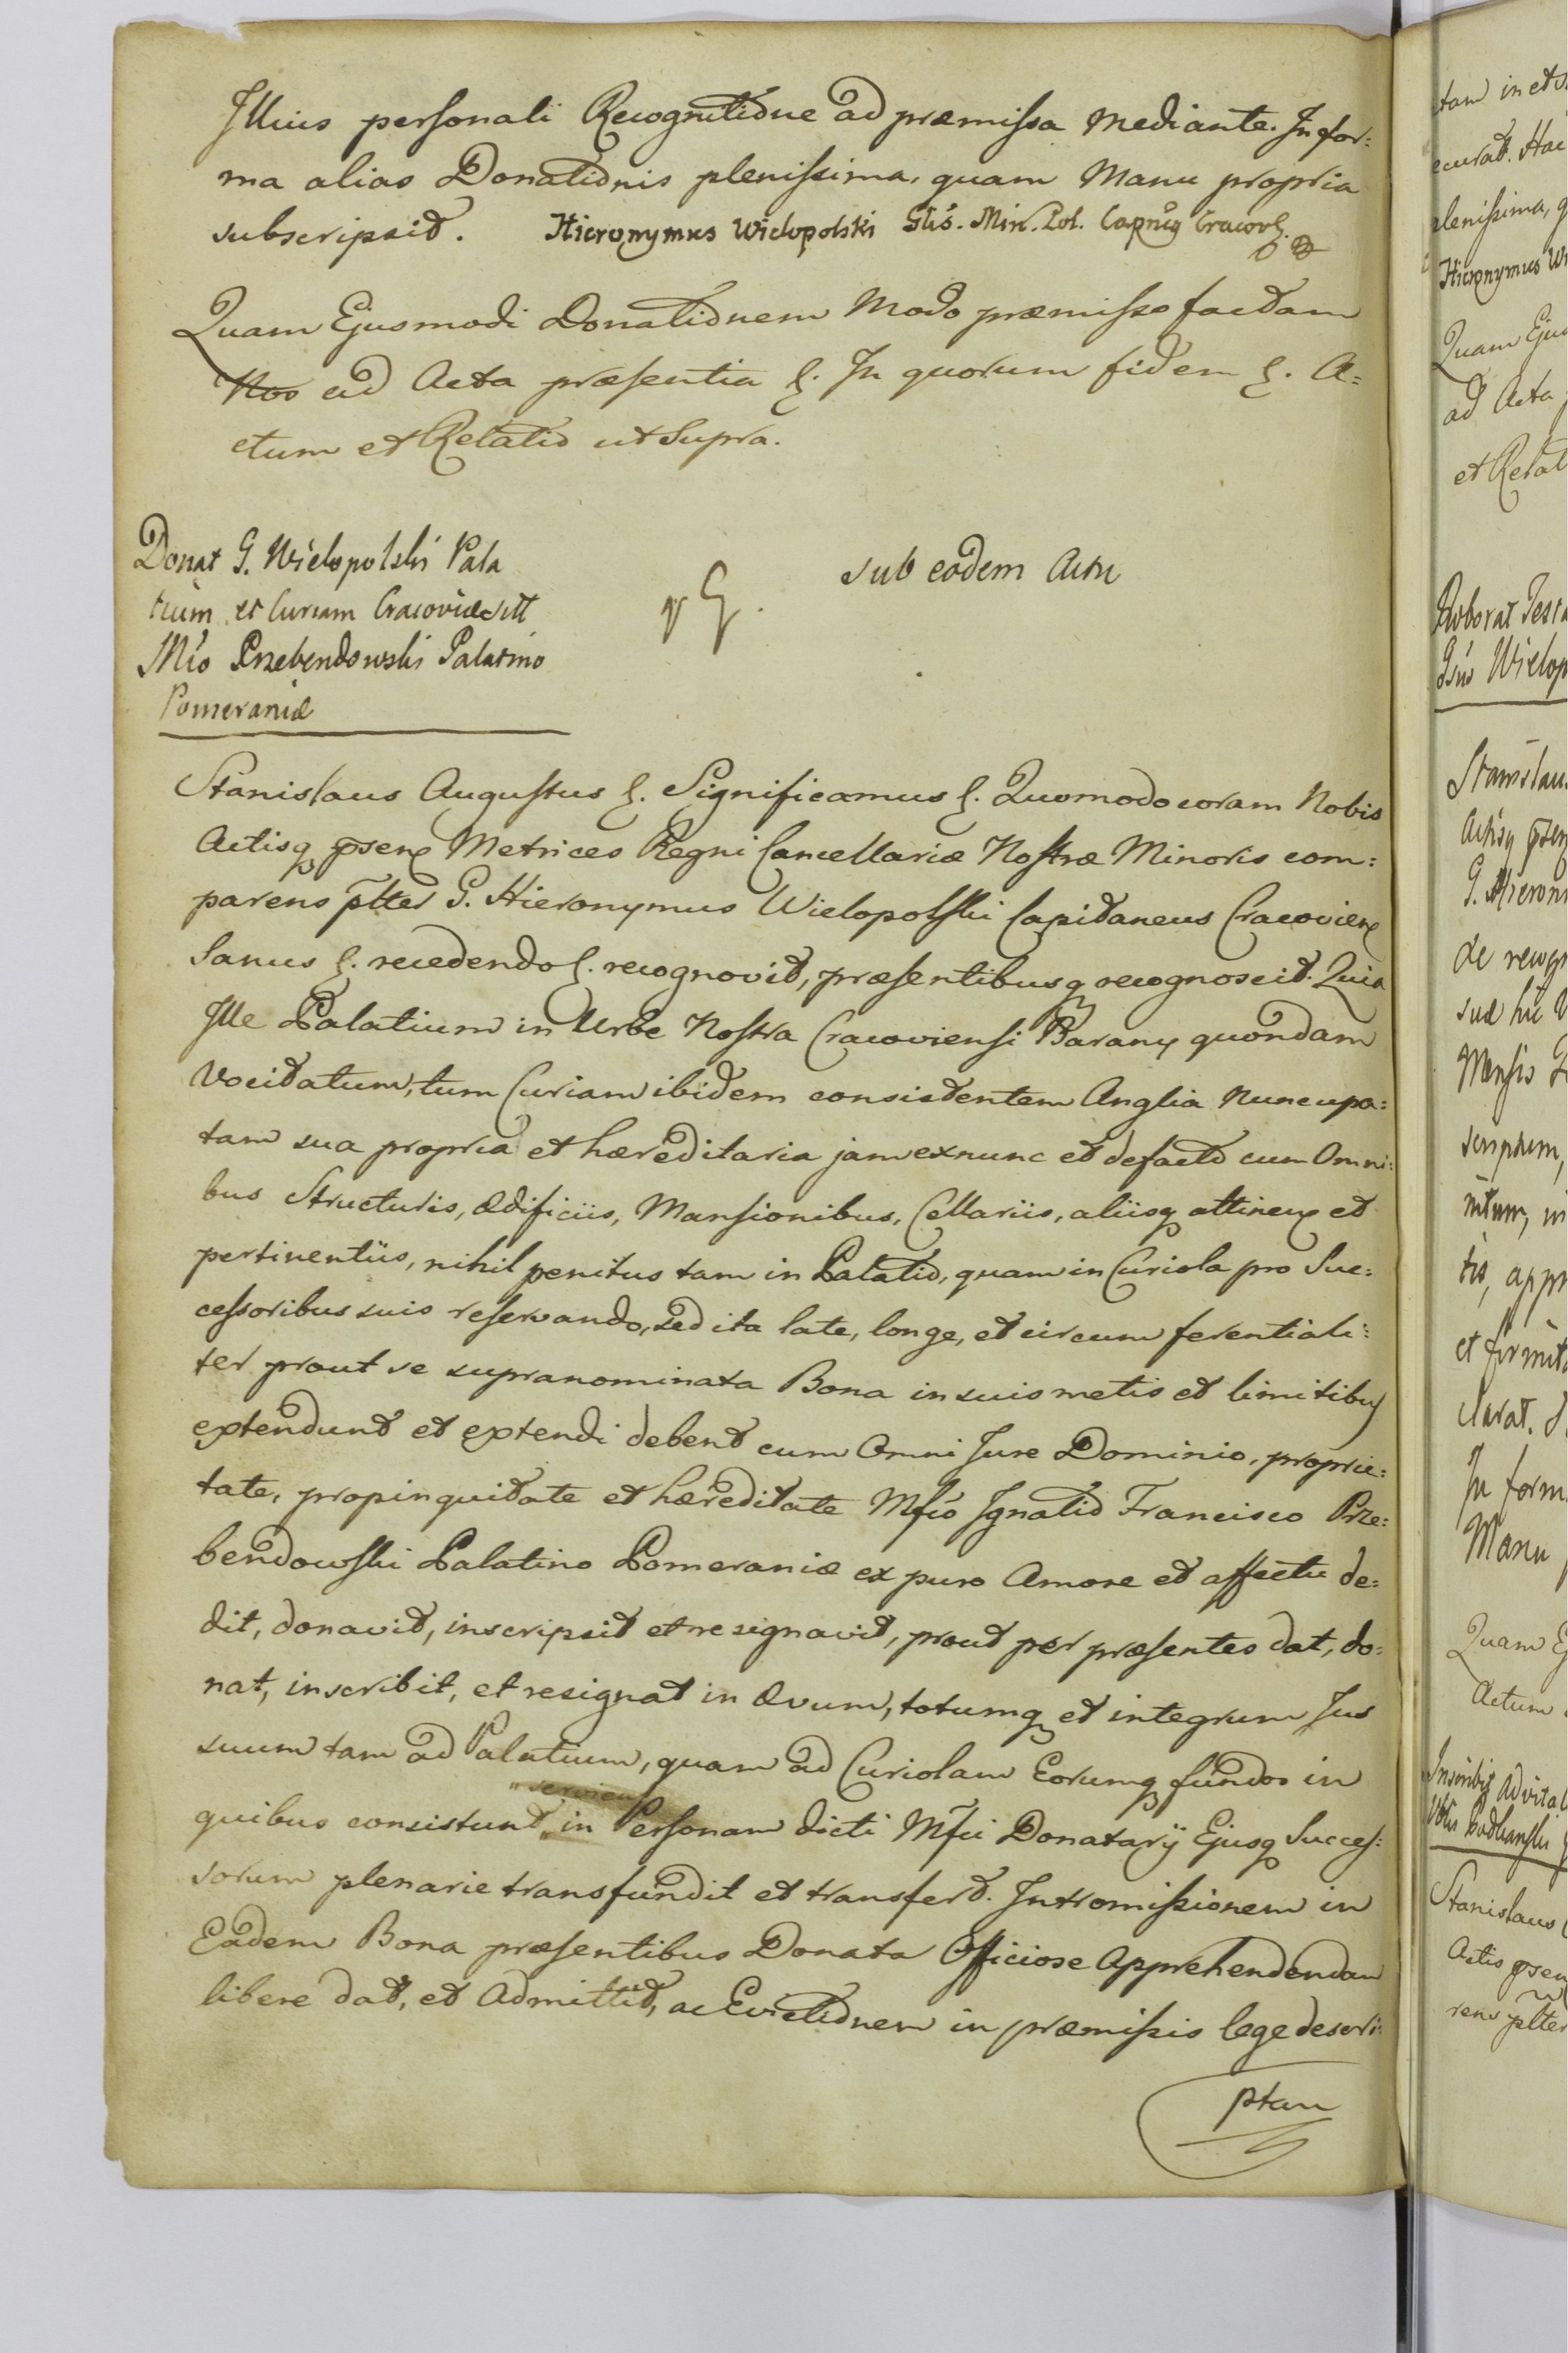 Illius personali Recognitione ad præmissa mediante. In for:
ma alias Donationis plenissima, quam Manu propria
subscripsit. Hieronymus Wielopolski Glis. Min. Pol. Capnęg Cracov.
Quam Ejusmodi Donationem Modo præmisso factam
Nos ad Acta præsentia &. In quorum fidem &. A=
ctum et Relatio ut Supra.
Donat G. Wielopolski Pala
tium et Curiam Cracoviæ sitt
Mfio Przebendowski Palatino
Pomeraniæ
sub eodem Actu
Stanislaus Augustus &. Significamus &. Quomodo coram Nobis
Actisq psen Metrices Regni Cancellariæ Nostræ Minoris com:
parens plter G. Hieronymus Wielopolski Capitaneus Cracovien
Sanus &. recedendo &. recognovit, præsentibusq recognoscit. Quia
Ille Palatium in Urbe Nostra Cracoviensi Barany quondam
Vocitatum, tum Curiam ibidem consistentem Anglia Nuncupa:
tam sua propria et hæreditaria jam exnunc et defacto cum Omni:
bus Structuris, ædificiis, Mansionibus, Cellariis, aliisq attinen et
pertinentiis, nihil penitus tam in Palatio, quam in Curiola pro Suc:
cessoribus suis reservando, sed ita late, longe, et circum ferentiali:
ter prout se supranominata Bona in suis metis et limitibus
extendunt et extendi debent cum Omni Jure Dominio, proprie:
tate, propinquitate et hæreditate Mfco Ignatio Francisco Prze:
bendowski Palatino Pomeraniæ ex puro Amore et affectu de:
dit, donavit, inscripsit et resignavit, prout per præsentes dat, do:
nat, inscribit, et resignat in ævum, totumq et integrum Jus
suum tam ad Palatium, quam ad Curiolam Eorumq fundos in
"servien
quibus consistunt, "in Personam dicti Mfci Donatarÿ Ejusq Succes:
sorum plenarie transfundit et transfert. Intromissionem in
Eadem Bona præsentibus Donata Officiose Apprehendendam
libere dat, et Admittit, ac Evictionem in præmissis lege descri:
ptam
tam in et
ecurat. Hac
plenissima, q
Hieronymus Wi
Quam Ejus
ad Acta
et Relat
Roborat Testa
Gsus Wielop
Stanislau
Actisq psen
G. Hieron
de recogn
suæ hic
Mensis
scriptum,
tis, appr
et firmit
clarat.
In form
Manu
Quam Ej
Actum
Inscribit advita
Stanislaus
Actis psen
rens plter